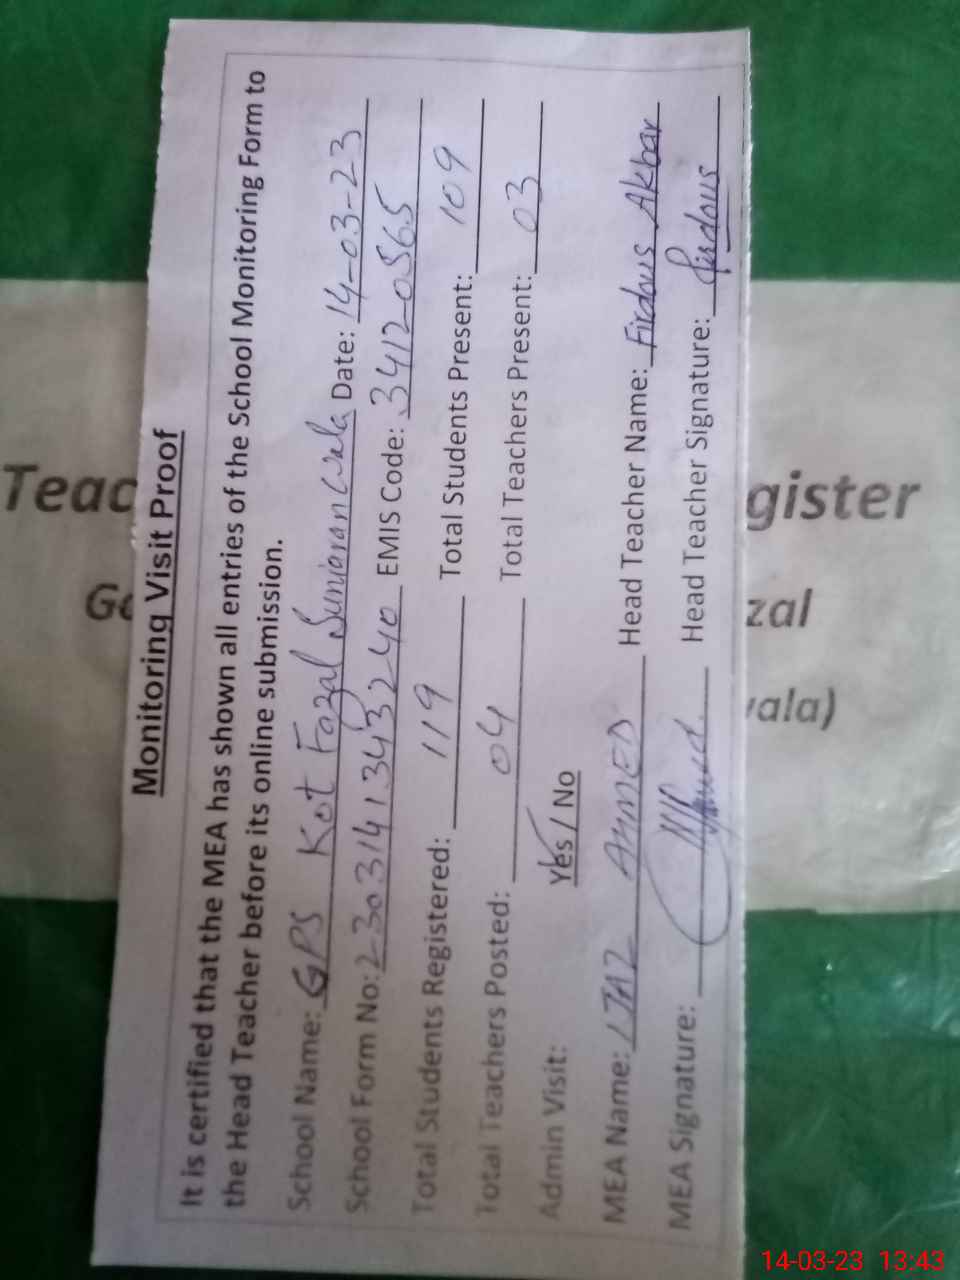 Monitoring Visit Proof
It is certified that the MEA has shown all entries of the School Monitoring Form to
the Head Teacher before its online submission.
School Name: GPS Kot Fazal Date: 14-03-23
School Form No: EMIS Code: 34120565
Total Students Registered: 119 Total Students Present: 109
Total Teachers Posted: 04 Total Teachers Present: 03
Admin Visit: Yes / No
MEA Name: IJAZ AHMED Head Teacher Name: Firdous Akbar
MEA Signature: Head Teacher Signature: firdous
Teac gister
Go zal
wala)
14-03-23 13:43